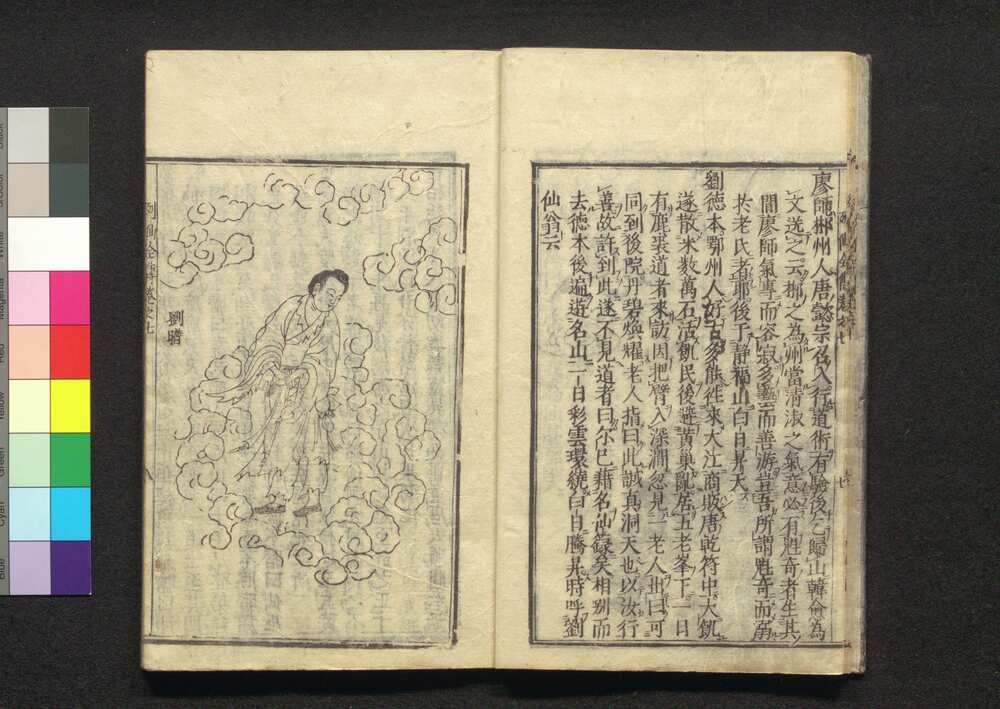 廖師郴州人唐懿宗召入行道術有驗後乞歸山韓愈為
文送之云郴之為州當清淑之氣意必有魁奇者生其
間廖師氣專而容寂多藝而善游豈吾所謂魁奇而溺
於老氏者耶後于靜福山白日昇天
劉德本鄂州人好古多能往來大江商販唐乾符中大飢
遂散米数萬石活飢民後避黄巢亂居五老峯下一日
有鹿裘道者來訪因把臂入深澗忽見一老人出曰可
同到後院丹碧煥耀老人指曰此誠真洞天也以汝行
善故許到此遂不見道者曰尓已籍名仙録矣相别而
去德本後遍遊名山一日彩雲環繞白日騰昇時呼劉
仙翁云
列仙全傳卷之七
劉𣈶
Black
White
Magenta
Red
Yellow
Green
Cyan
Blue